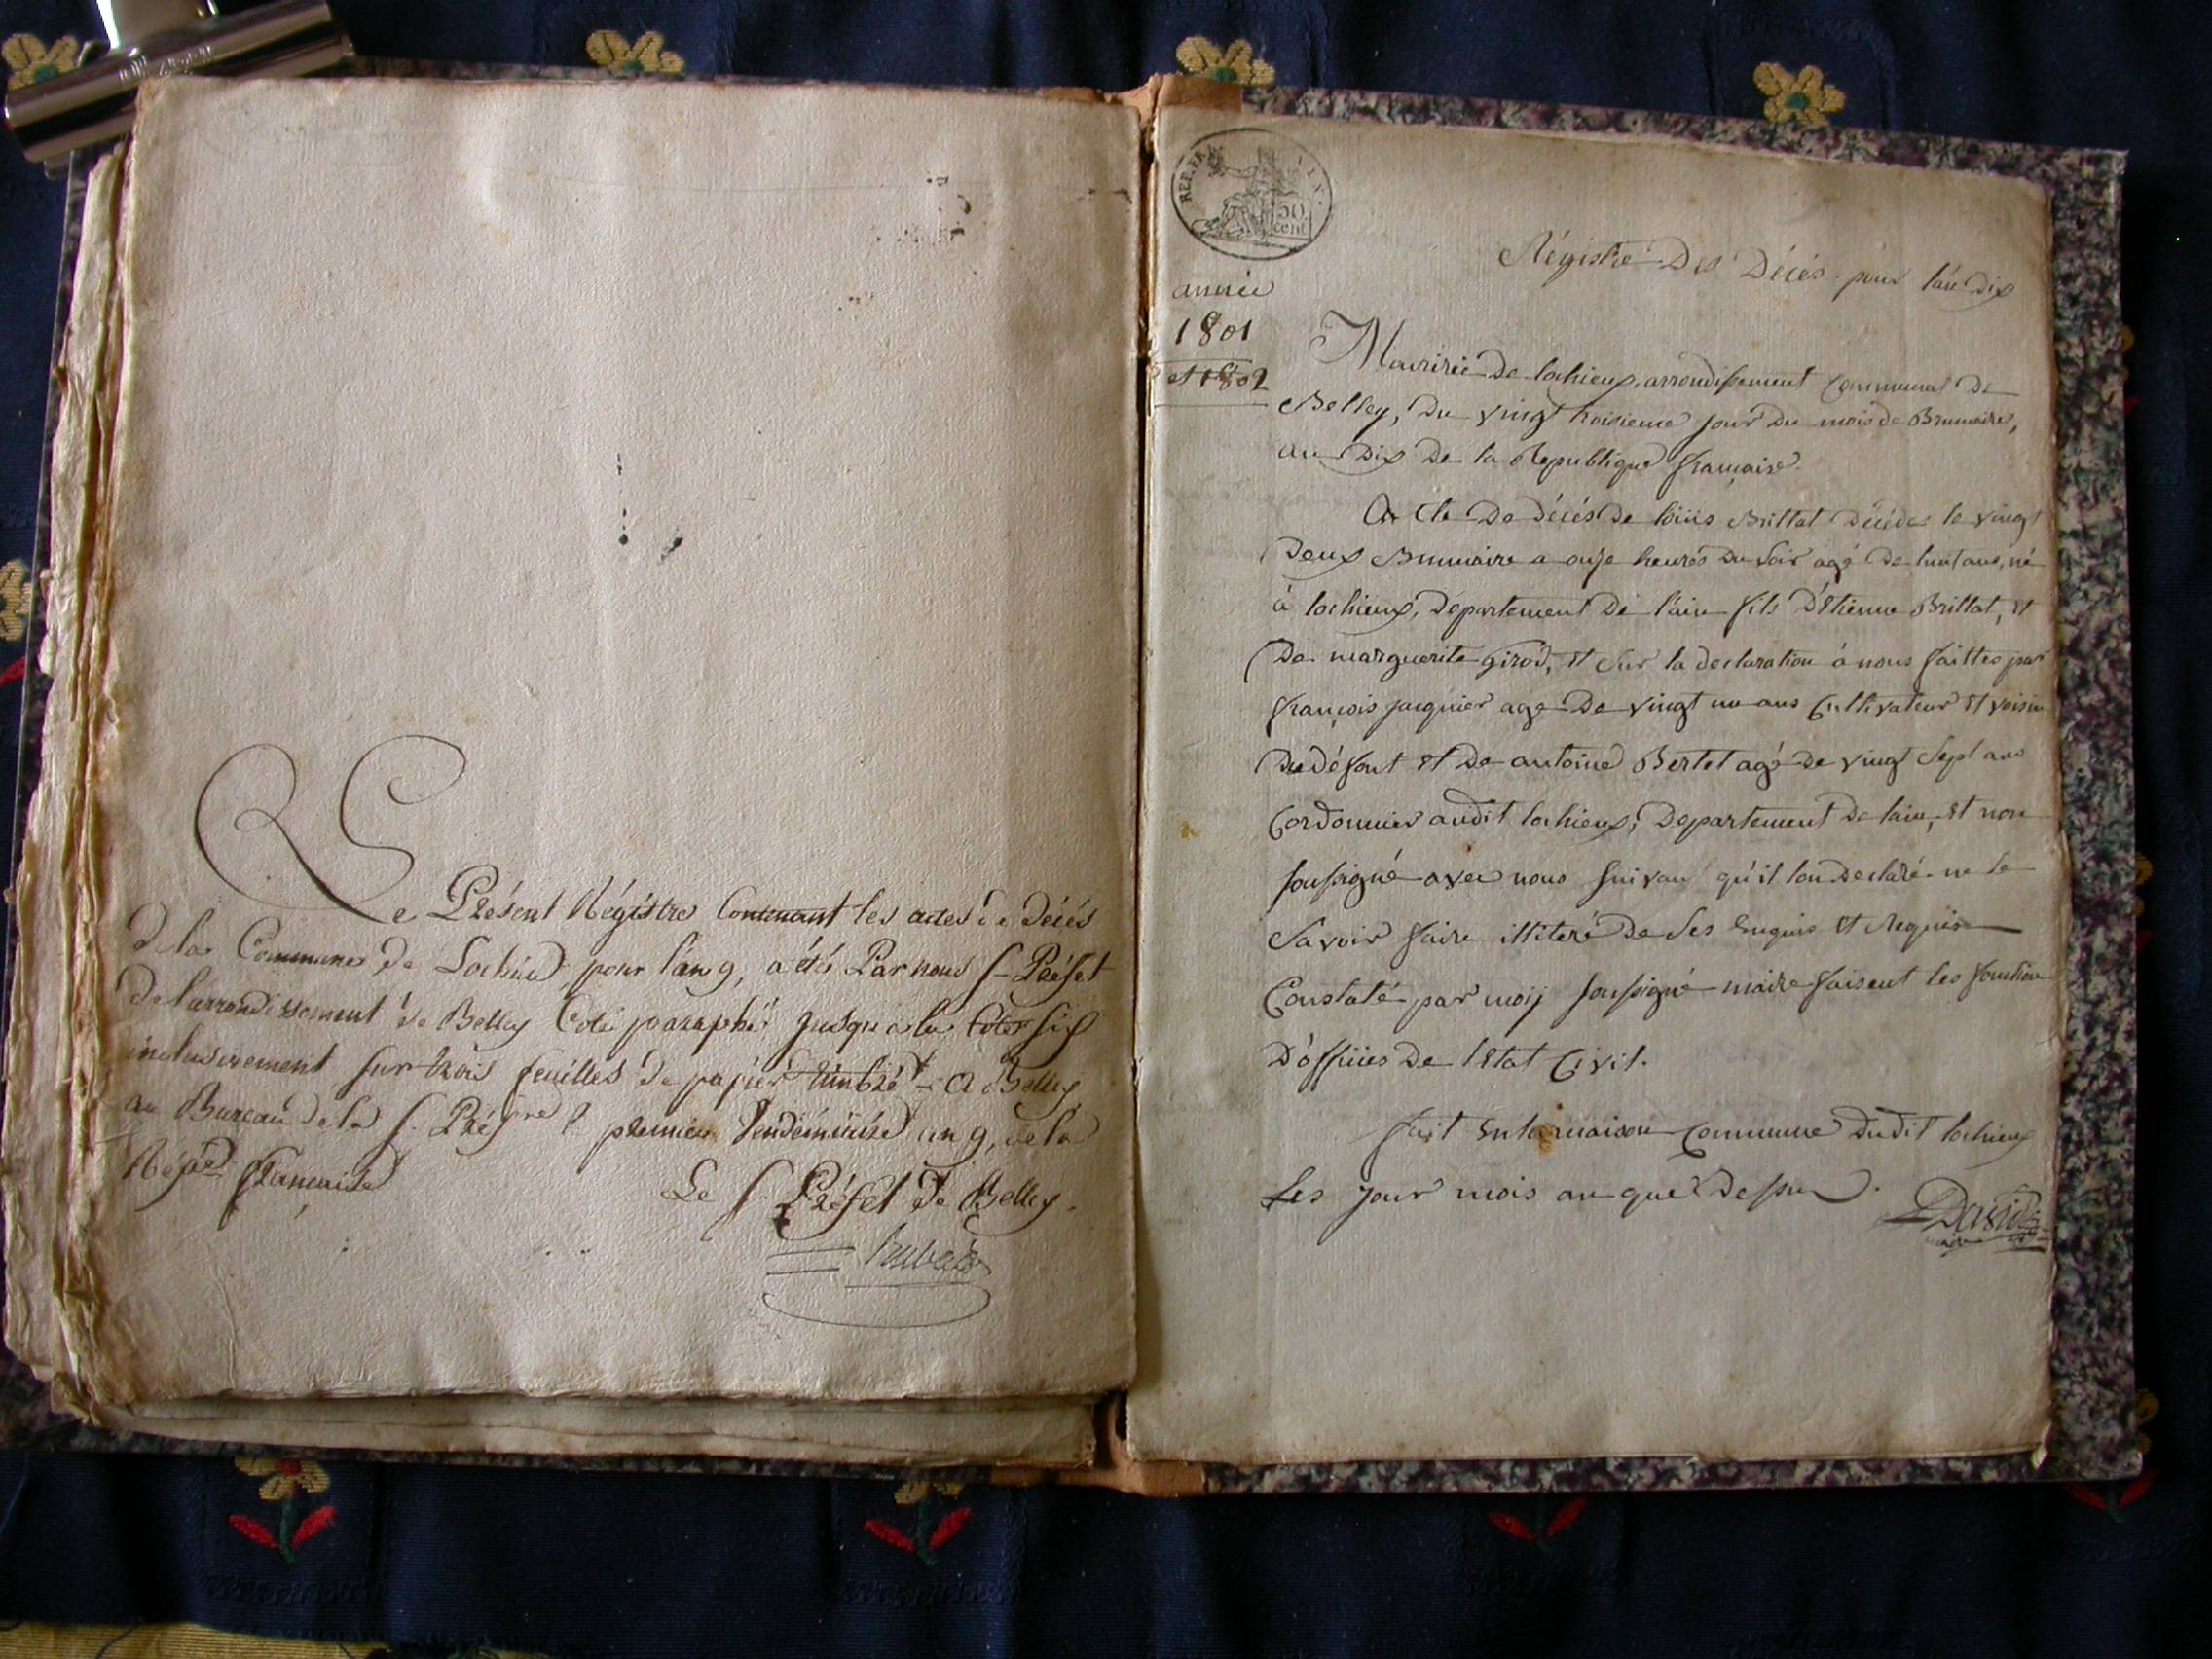 Le Présent Régistre Contenant les actes de Décés
De la Commune de Lochieu pour l'an 9, a été Par nous S-Préfet
De l'arrondissement de Belley Coté paraphé jusqu'à la Cote six
inclusivement sur trois feuilles de papier timbré. A Belley
au Bureau de la S. Préfre premier Vendémiaire an 9, de la
Répue française
Le S. Préfet de Belley.
REP. FRA
50
cent
année
1801
et 1802
Régistre Des Décés pour l'an Dix
Mairie De lochieux, arrondissement Communal De
Belley, Du vingt troisieme jour Du mois de Brumaire,
an Dix De la Republique française.
Acte De décés De loüis Brillat Décédé le vingt
Deux Brumaire a onze heures Du Soir agé De huit ans, né
à lochieux, Departement De l'ain fils D'Etienne Brillat, Et
De marguerite girod, Et Sur la declaration à nous faittes par
françois jacquier age De vingt un ans Cultivateur Et voisin
Du défont Et De antoine Bertet agé de vingt Sept ans
Cordonnier audit lochieux, Departement De lain, Et non
soussigné avec nous suivan qu'il lon Declaré ne le
Savoir faire illiteré De Ses Enquis Et Requis
Constaté par moij soussigné maire faisent les fonction
D'offiiies De l'Etat Civil.
fait En la maison Commune Dudit lochieux
Les jour mois an que Dessus.
David